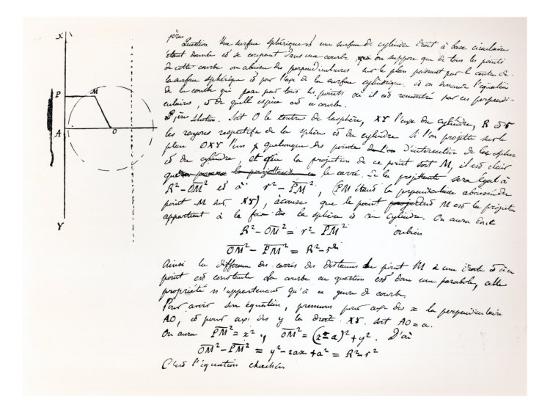 X
P
M
A
O
Y
Question Une surface sphérique et une surface de cylindre droit à base circulaire
étant données et se coupant suivant une courbe, on suppose que de tous les points
de cette courbe on abaisse des perpendiculaires sur le plan passant par le centre de
la surface sphérique et par l'axe de la surface cylindrique, et on demande l'équation
de la courbe qui passe par tous les points où il est rencontré par ces perpendi-
culaires, et de quelle espèce est la courbe.
Soit O le centre de la sphère, XY l'axe du cylindre, R et r
les rayons respectifs de la sphère et du cylindre. Si l'on projette sur le
plan OXY l'un quelconque des points d'intersection de la sphère
et du cylindre, et que la projection de ce point soit M, il est clair
que le carré de la projetante sera égal à
R² - OM² et à r² - PM², (PM étant la perpendiculaire abaissée du
point M sur XY), à cause que le point dont M est la projection
appartient à la fois à la sphère et au cylindre. On aura donc
R² - OM² = r² - PM² ou bien
OM² - PM² = R² - r²
Ainsi la différence des carrés des distances du point M à une droite et à un
point est constante. La courbe en question est donc une parabole, cette
propriété n'appartenant qu'à ce genre de courbe.
Pour avoir son équation, prenons pour axe des x la perpendiculaire
AO, et pour axe des y la droite XY. Soit AO = a.
On aura PM² = x², OM² = (x - a)² + y². D'où
OM² - PM² = y² - 2ax + a² = R² - r²
C'est l'équation cherchée